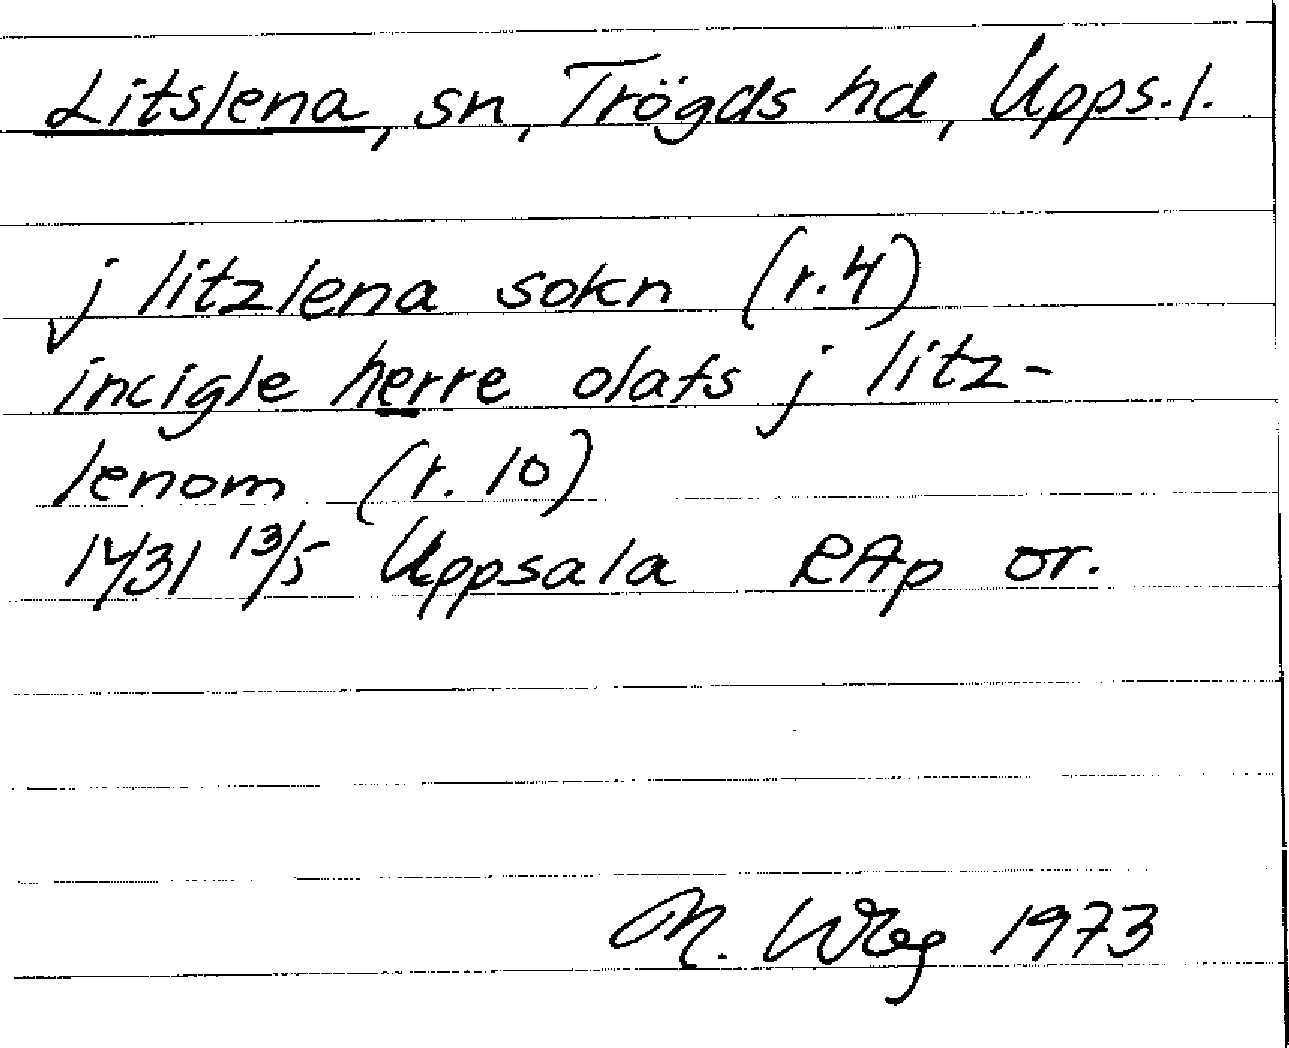 Litslena, sn, Trögds hd, Upps. l.
j litzlena sokn (r. 4)
incigle herre olafs j litz-
lenom (r. 10)
1431 13/5 Uppsala RAp or.
M. 1973